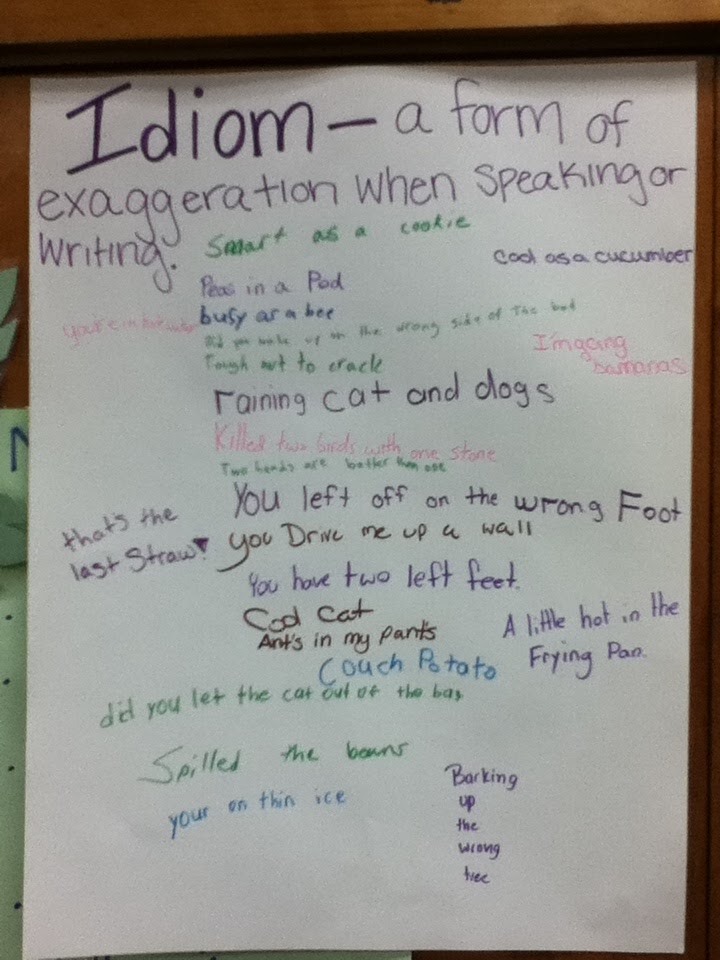 Idiom - a form of
exaggeration when speaking or
writing.
Smart as a cookie
Cool as a cucumber
Peas in a Pod
busy as a bee
you're in hot water
Did you wake up on the wrong side of The bed
I'm going
bananas
Tough nut to crack
raining cat and dogs
Killed two birds with one stone
Two heads are batter then one
You left off on the wrong Foot
that's the
last Straw!
you Drive me up a wall
You have two left feet.
Cool cat
Ant's in my pants
A little hot in the
Frying Pan.
Couch Potato
did you let the cat out of the bag
Spilled the beans
your on thin ice
Barking
up
the
wrong
tree
N